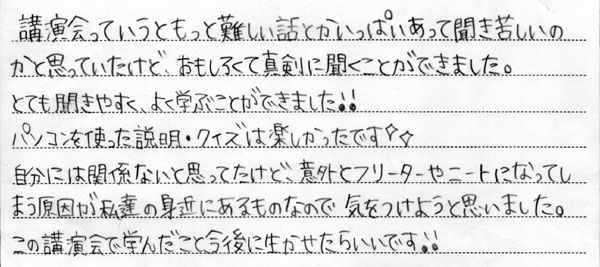 講演会っていうともっと難しい話とかいっぱいあって聞き苦しいの
かと思っていたけど、おもしろくて真剣に聞くことができました。
とても聞きやすく、よく学ぶことができました!!
パソコンを使った説明・クイズは楽しかったです✧✧
自分には関係ないと思ってたけど、意外とフリーターやニートになってし
まう原因が私達の身近にあるものなので気をつけようと思いました。
この講演会で学んだこと今後に生かせたらいいです!!